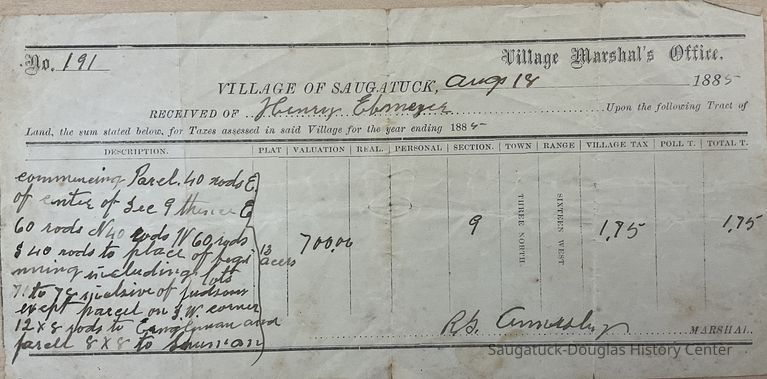 No. 191
Village Marshal's Office.
VILLAGE OF SAUGATUCK, Aug 18 1885
RECEIVED OF Henry Ebmeyer Upon the following Tract of
Land, the sum stated below, for Taxes assessed in said Village for the year ending 1885
DESCRIPTION. PLAT VALUATION REAL. PERSONAL SECTION. TOWN RANGE VILLAGE TAX POLL T. TOTAL T.
commencing Parcl. 40 rods E.
of center of Sec 9 thence E
60 rods N 40 rods W 60 rods
S 40 rods to place of begi
nning including lots
71 to 78 inclusive of Judsons
except parcel on S.W. corner
12 X 8 rods to Engleman and
parcll 8 X 8 to
13 acers
700.00
9
THREE NORTH.
SIXTEEN WEST
1,75
1,75
R.G. Annesley MARSHAL.
Saugatuck-Douglas History Center